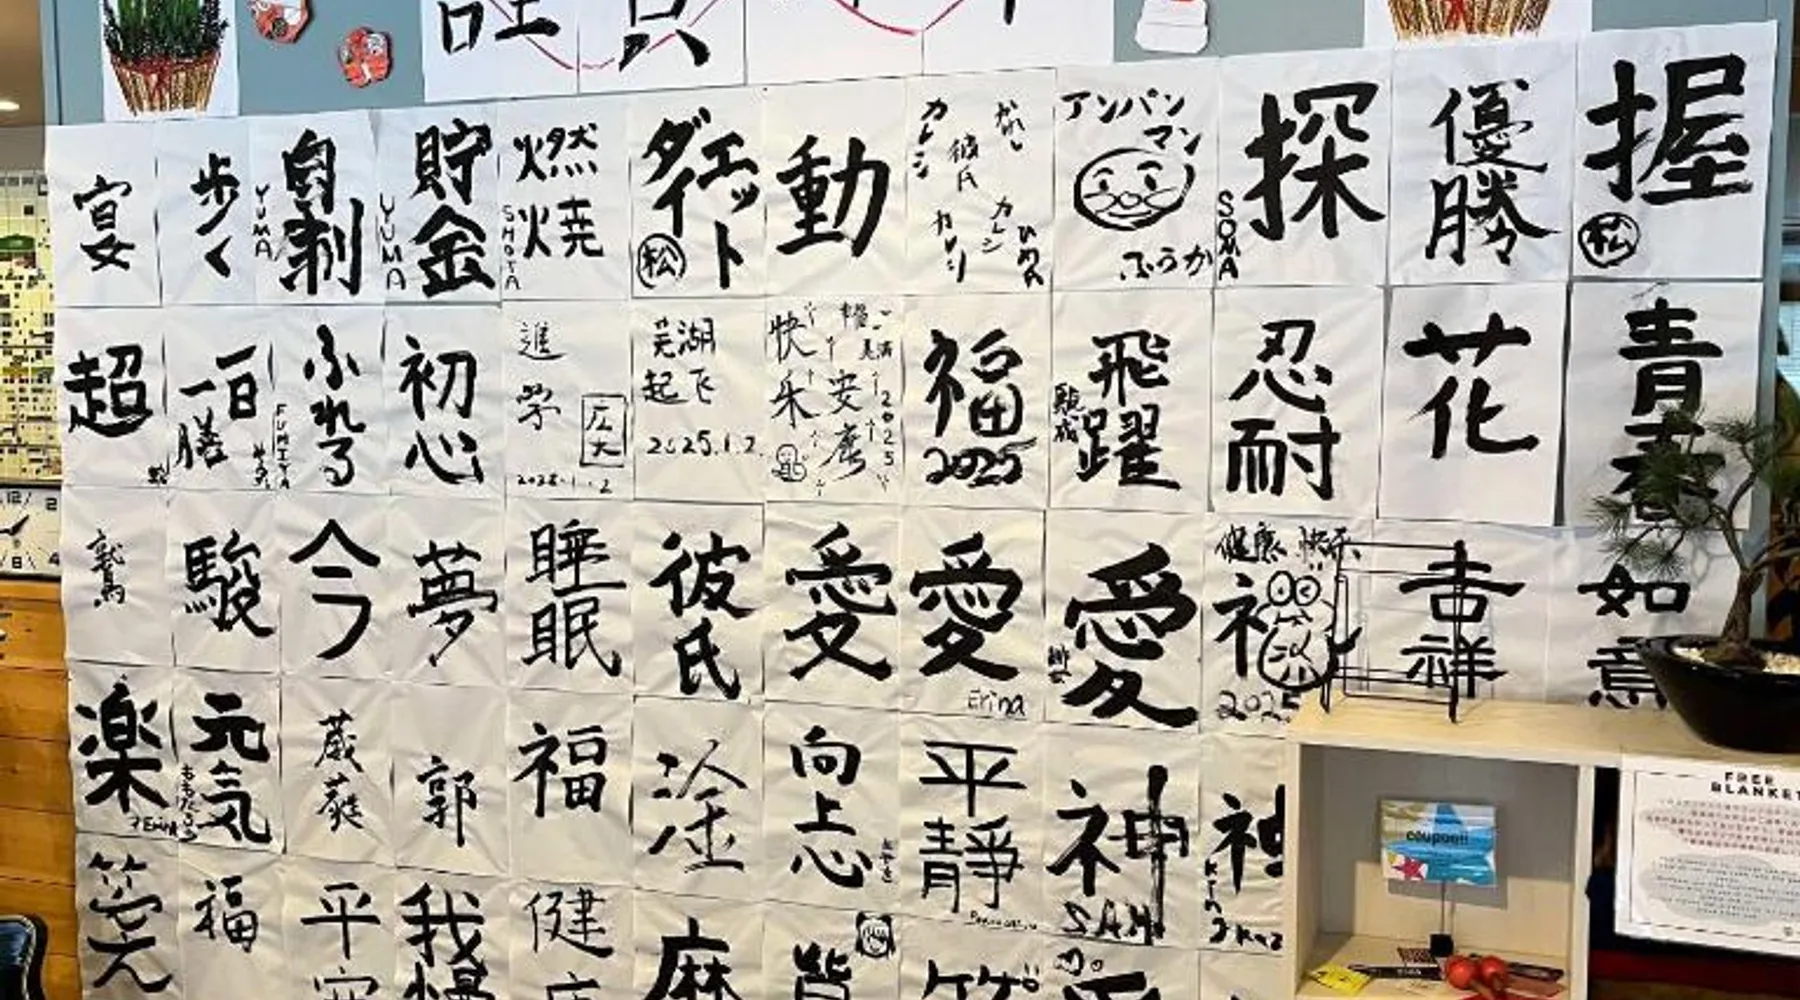 謹賀
宴
歩く
YUMA
自制
YUMA
貯金
SHOTA
燃焼
ダイエット
松
動
カレシ
かれし
彼氏
カレシ
カレシ
アンパンマン
ふうか
SOMA
探
優勝
握
松
超
一日一膳
FUMIYA
ふれる
初心
進学
広大
芜湖起飞
2025.1.2.
快乐
安康
2025
福
2025
飛躍
忍耐
花
青春
鷲
駿
今
夢
睡眠
彼氏
愛
愛
Erina
愛
健康 快乐
2025
吉祥
如意
楽
Erina
元気
ももたろう
葳蕤
郭
福
淦
向上心
平静
神
SAM
神
笑
福
平安
我慢
健康
麻
FREE BLANKET
coupon!!